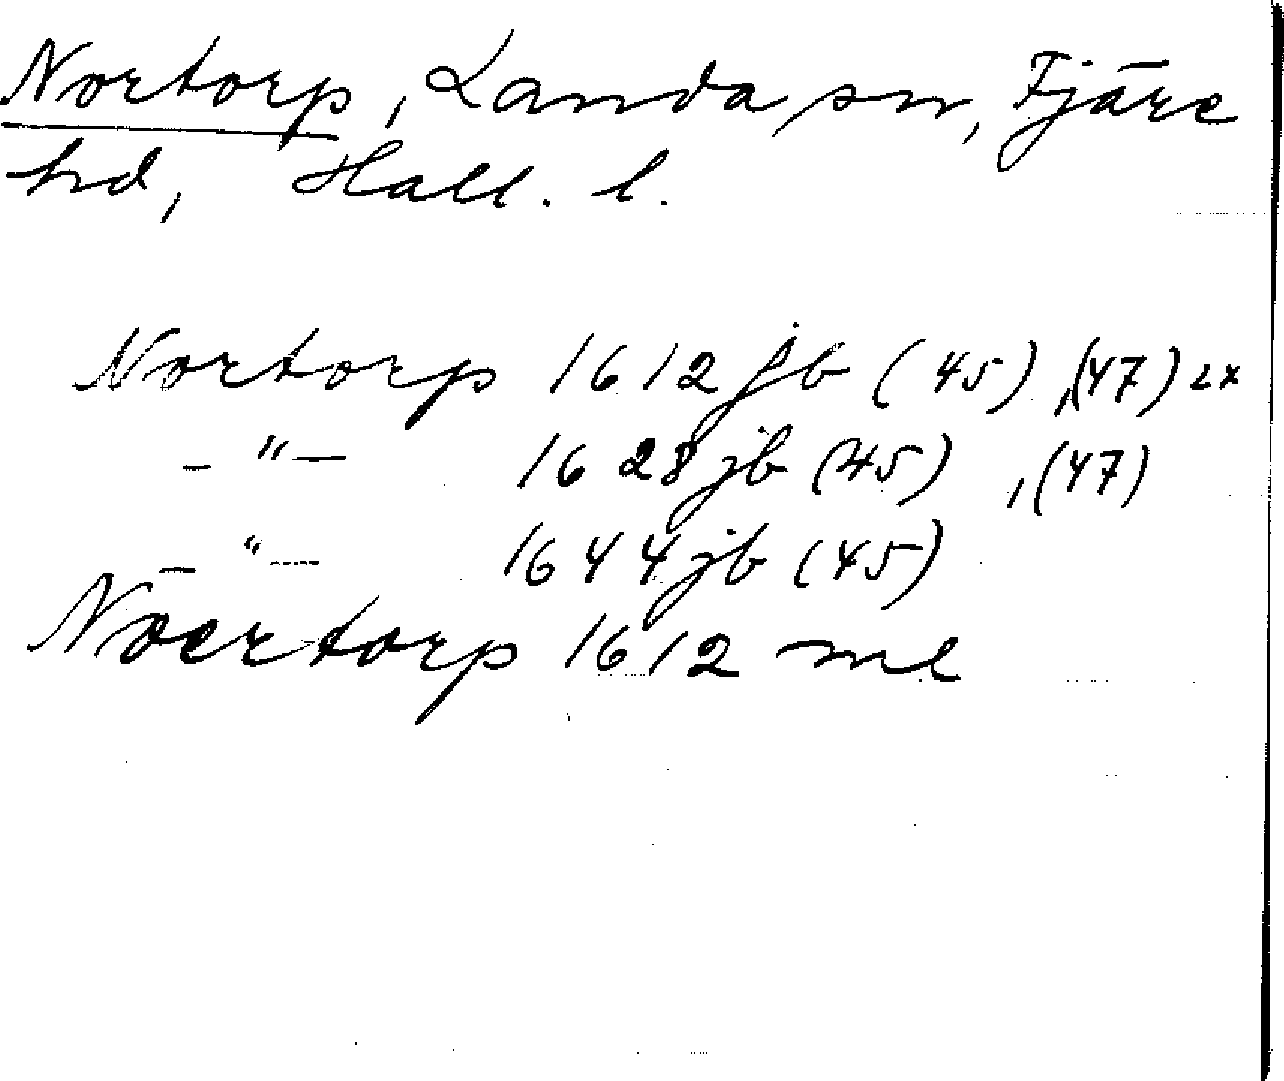 Nortorp, Landa sn, Fjäre
hd, Hall. l.
Nortorp 1612 jb (45), (47) 2x
-"- 1628 jb (45), (47)
-"- 1644 jb (45)
Noertorp 1612 ml